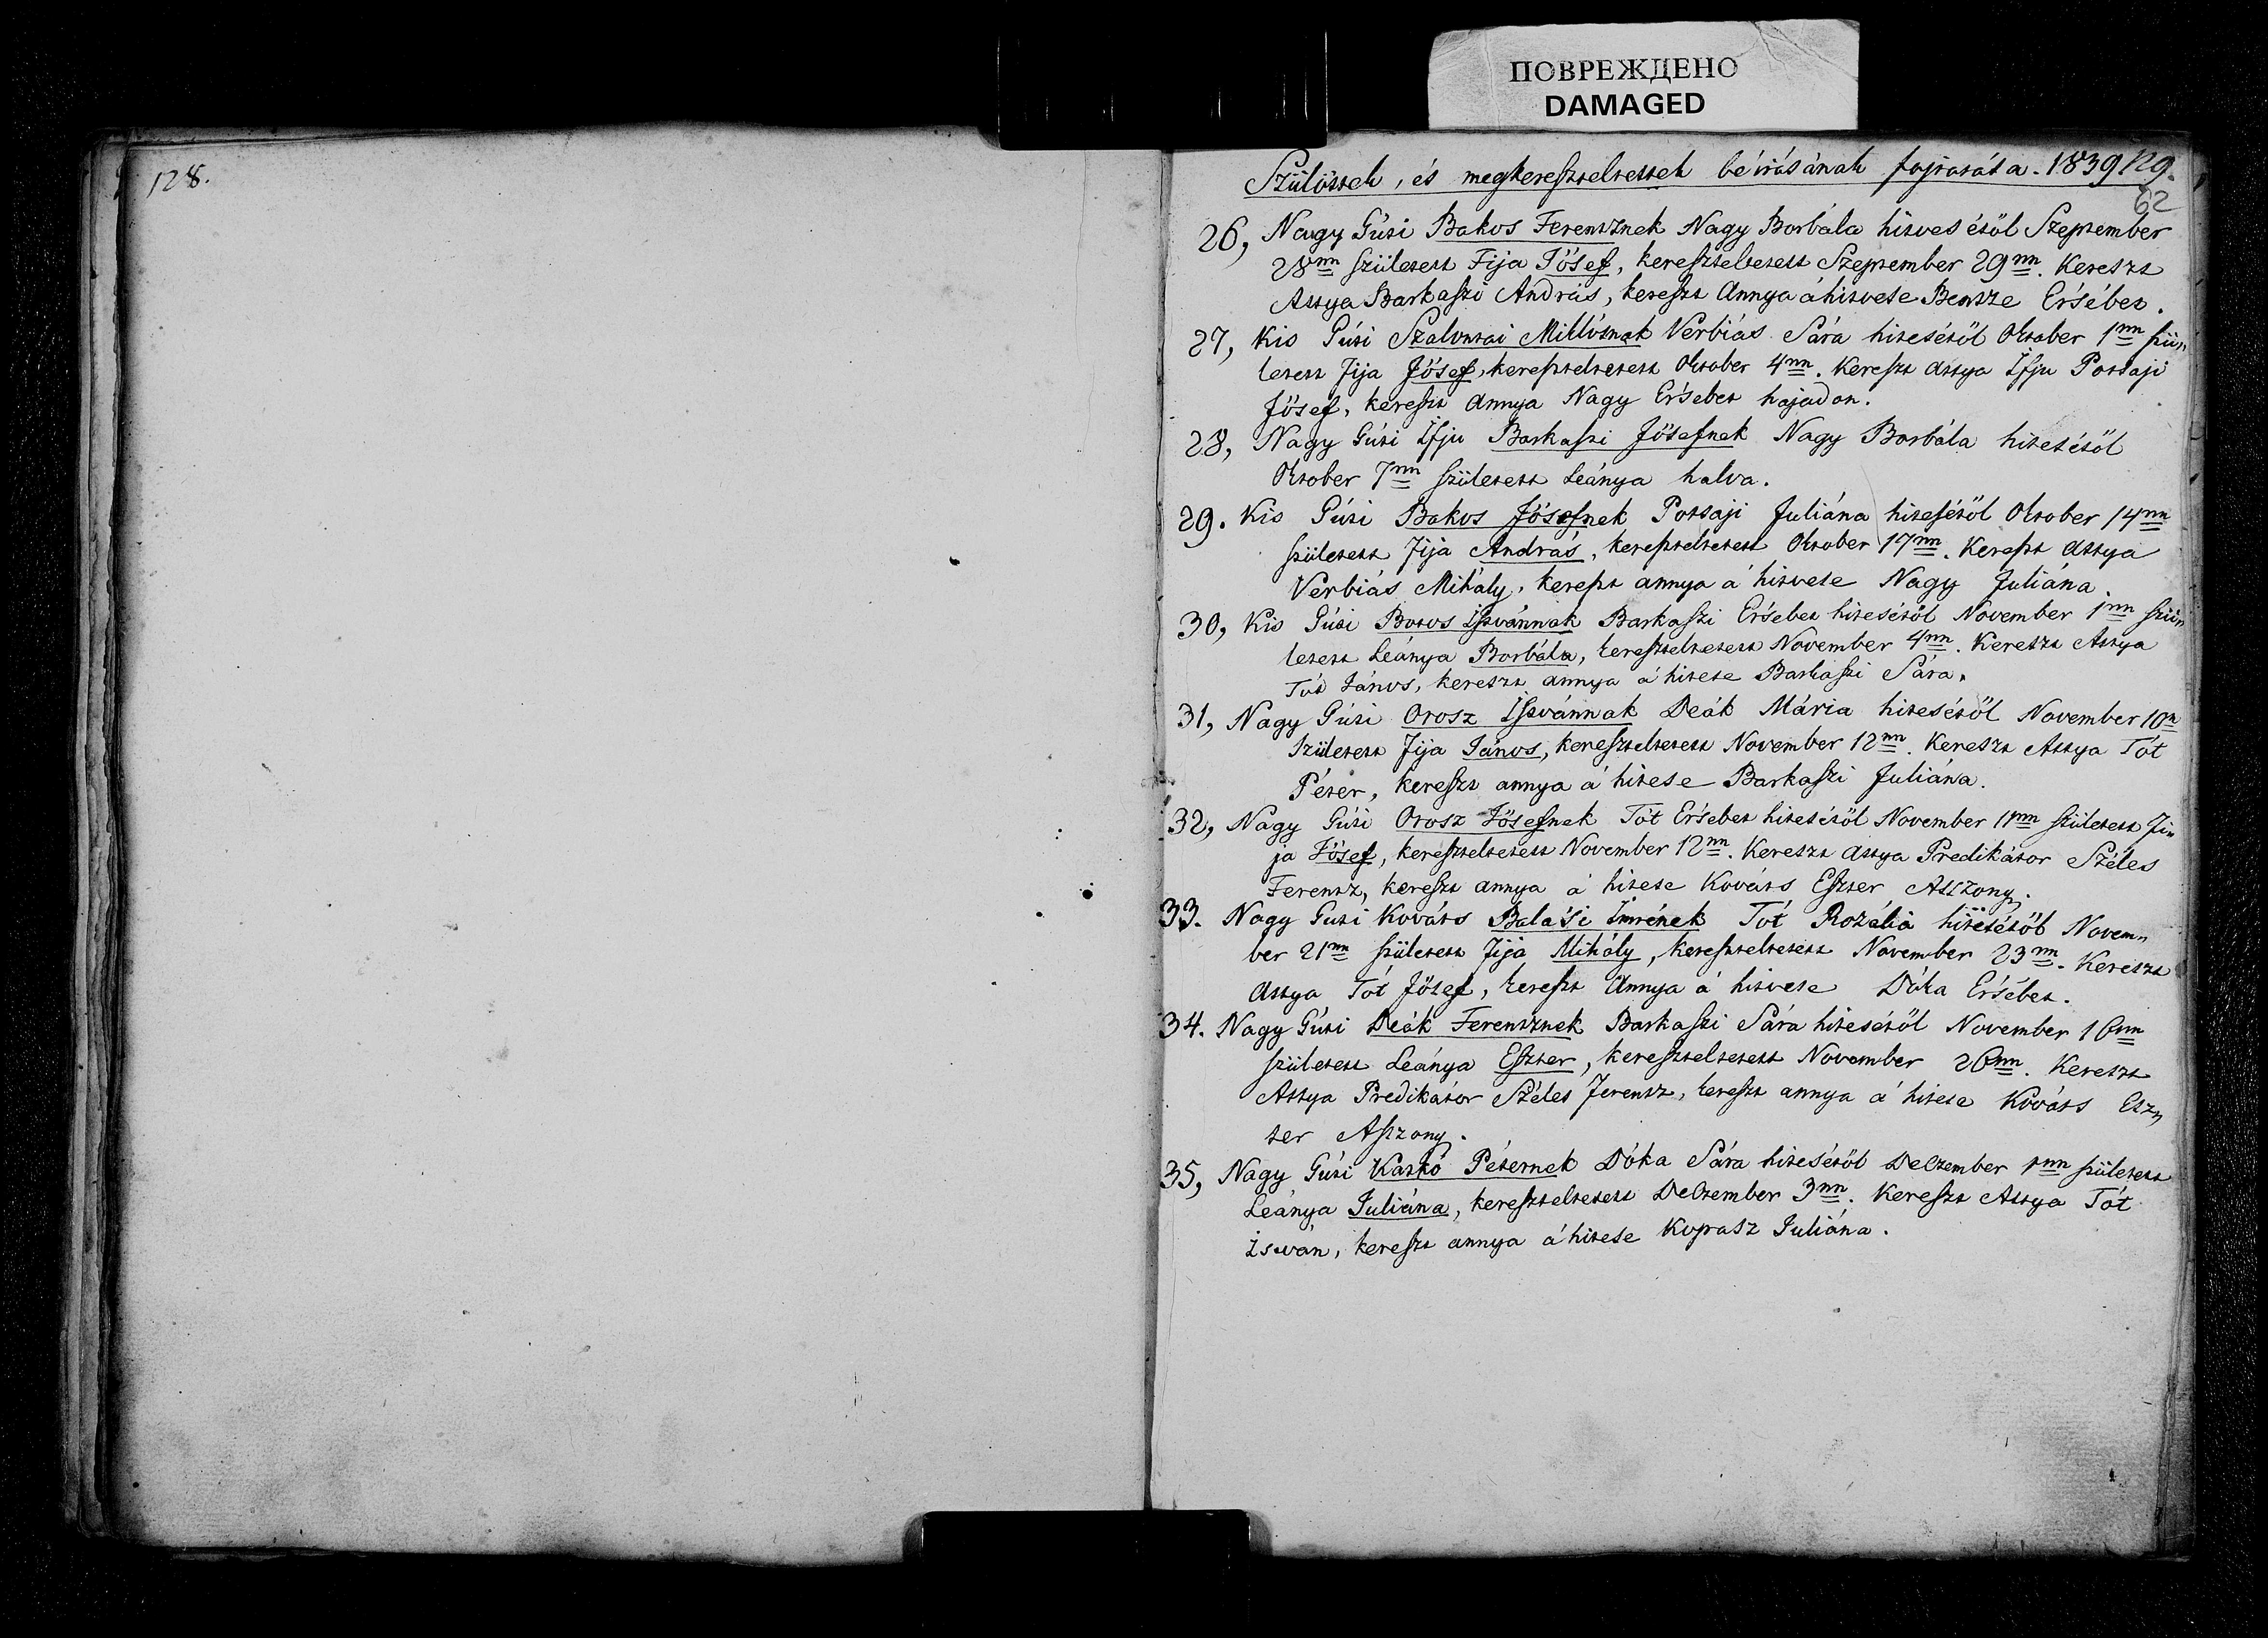 ПОВРЕЖДЕНО
DAMAGED
128.
Szülöttek, és megkereszteltettek béirásának fojtatása. 1839 129.
62
26, Nagy Gúti Bakos Ferentznek Nagy Borbála hitvesétöl Szeptember
28nn született Fija Jósef, kereszteltetett Szeptember 29nn. Kereszt
Attya Barkaszi András, kereszt Annya á hitvese Bentze Ersébet.
27, Kis Gúti Szalontai Miklósnak Verbiás Sára hitesétöl Oktober 1nn szü„
letett Fija Jósef, kereszteltetett Oktober 4nn. Kereszt attya Ifju Pottaji
Jósef, kereszt Annya Nagy Ersebet hajadon.
28, Nagy Gúti Ifju Barkaszi Jósefnek Nagy Borbála hitesétöl
Oktober 7nn született Leánya halva.
29. Kis Gúti Bakos Jósefnek Pottaji Juliána hitesétöl Oktober 14nn
született Fija András, kereszteltetett Oktober 17nn. Kereszt attya
Verbiás Mihály, kereszt annya á hitvese Nagy Juliána.
30, Kis Gúti Botos Istvánnak Barkaszi Ersebet hitesétöl November 1nn szü„
letett Leánya Borbála, kereszteltetett November 4nn. Kereszt Attya
Tót János, kereszt annya á hitese Barkaszi Sára.
31, Nagy Gúti Orosz Istvánnak Deák Mária hitesétöl November 10n
Született Fija János, kereszteltetett November 12nn. Kereszt Attya Tót
Péter, kereszt annya á hitese Barkaszi Juliána.
32, Nagy Gúti Orosz Jósefnek Tót Ersebet hitesétöl November 11nn született Fi„
ja Jósef, kereszteltetett November 12nn. Kereszt attya Predikátor Széles
Ferentz, kereszt annya á hitese Kováts Eszter Aszszony.
33. Nagy Guti Kováts Balási Imrének Tót Rozália hitesétöl Novem„
ber 21nn született Fija Mihály, kereszteltetett November 23nn. Kereszt
Attya Tót Jósef, kereszt Annya á hitvese Dóka Ersébet.
34. Nagy Gúti Deák Ferentznek Barkaszi Sára hitesétöl November 16nn
született Leánya Eszter, kereszteltetett November 26nn. Kereszt
Attya Predikátor Széles Ferentz, kereszt annya á hitese Kováts Esz„
ter Aszzony.
35, Nagy Gúti Kaskó Péternek Dóka Sára hitesétöl Detzember 1nn született
Leánya Juliána, kereszteltetett Detzember 3nn. Kereszt Attya Tót
István, kereszt annya á hitese Koprasz Juliána.